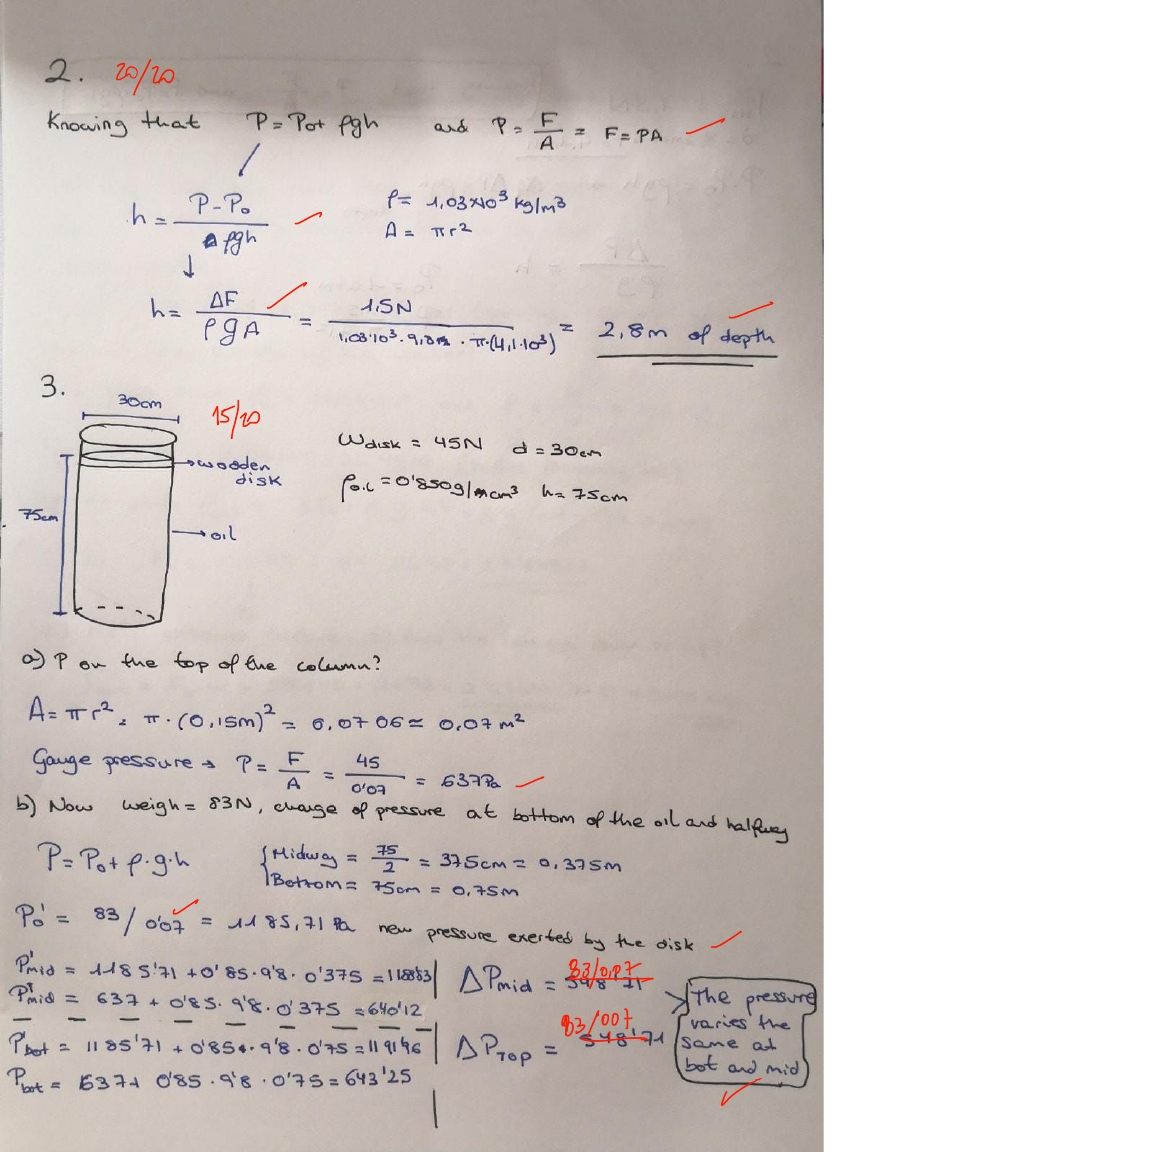 2. 20/20
Knowing that P = Po + ρgh and P = F/A = F = PA
h = P - Po / ρgh ρ = 1,03x10³ kg/m³
A = πr²
h = ΔF / ρgA = 1,5N / 1,03·10³·9,8 · π·(4,1·10³) = 2,8m of depth
3.
30cm 15/20
Wdisk = 45N d = 30cm
→ wooden
disk
ρoil = 0'850g/cm³ h = 75cm
75cm
→ oil
a) P on the top of the column?
A = πr² = π·(0,15m)² = 0,0706 ≈ 0,07m²
Gauge pressure → P = F/A = 45/0'07 = 637Pa
b) Now weigh = 83N, change of pressure at bottom of the oil and halfway
P = Po + ρ·g·h { Midway = 75/2 = 37,5cm = 0,375m
Bottom = 75cm = 0,75m
Po' = 83/0'07 = 1185,71 Pa new pressure exerted by the disk
P'mid = 1185'71 + 0'85·9'8·0'375 = 1188'83 ΔPmid = 83/0,07 548'71
Pmid = 637 + 0'85·9'8·0'375 = 640'12
P'bot = 1185'71 + 0'85·9'8·0'75 = 1191'96 ΔPTOP = 83/007 548'71
Pbot = 637 + 0'85·9'8·0'75 = 643'25
→ The pressure
varies the
same at
bot and mid